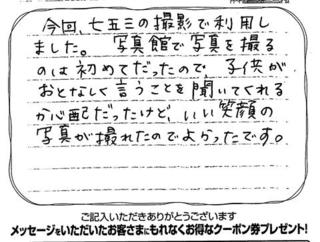 今回、七五三の撮影で利用し
ました。写真館で写真を撮る
のは初めてだったので、子供が
おとなしく言うことを聞いてくれる
か心配だったけど、いい笑顔の
写真が撮れたのでよかったです。
ご記入いただきありがとうございます
メッセージをいただいたお客さまにもれなくお得なクーポン券プレゼント!